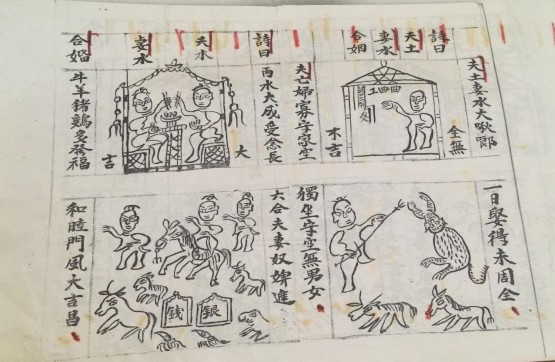 詩曰
夫土
妻水
合姻
夫土妻水大
全無
一日娶得未周全
夫亡婦寡守家空
獨坐守空無男女
未吉
詩曰
夫水
妻水
合婚
両水夫成受念長
六合夫妻奴婢進
牛羊猪鷄多發福
和睦門風大吉昌
大
吉
銀
钱